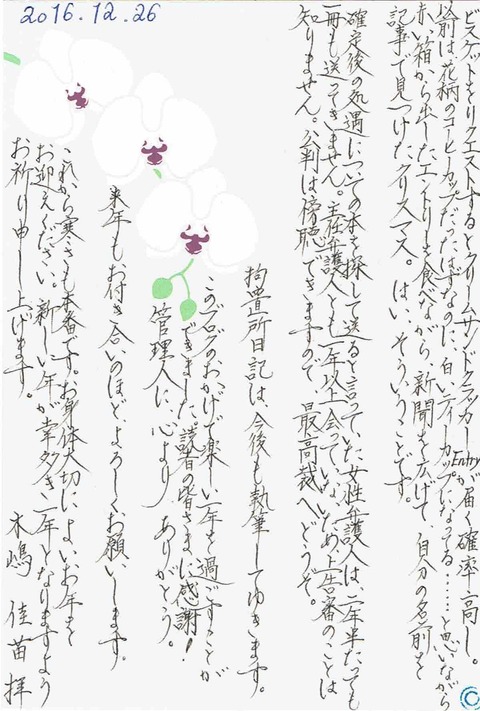 2016.12.26
ビスケットをリクエストするとクリームサンドクラッカーEntryが届く確率高し。
以前は花柄のコーヒーカップだったはずなのに、白いティーカップになってる……と思いながら
赤い箱から出したエントリーを食べながら、新聞を広げて、自分の名前を
記事で見つけたクリスマス。はい、そういうことです。
確定後の処遇についての本を探して送ると言っていた女性弁護人は、一年半たっても
一冊も送ってきません。主任弁護人とも一年以上会っていないため上告審のことは
知りません。公判は傍聴できますので、最高裁へどうぞ。
拘置所日記は、今後も執筆してゆきます。
このブログのおかげで楽しい一年を過ごすことが
できました。読者の皆さまに感謝!
管理人に、心よりありがとう。
来年もお付き合いのほどよろしくお願いします。
これから寒さも本番です。お身体大切によいお年を
お迎えください。新しい年が幸多き一年となりますよう
お祈り申し上げます。
木嶋佳苗 拝
©